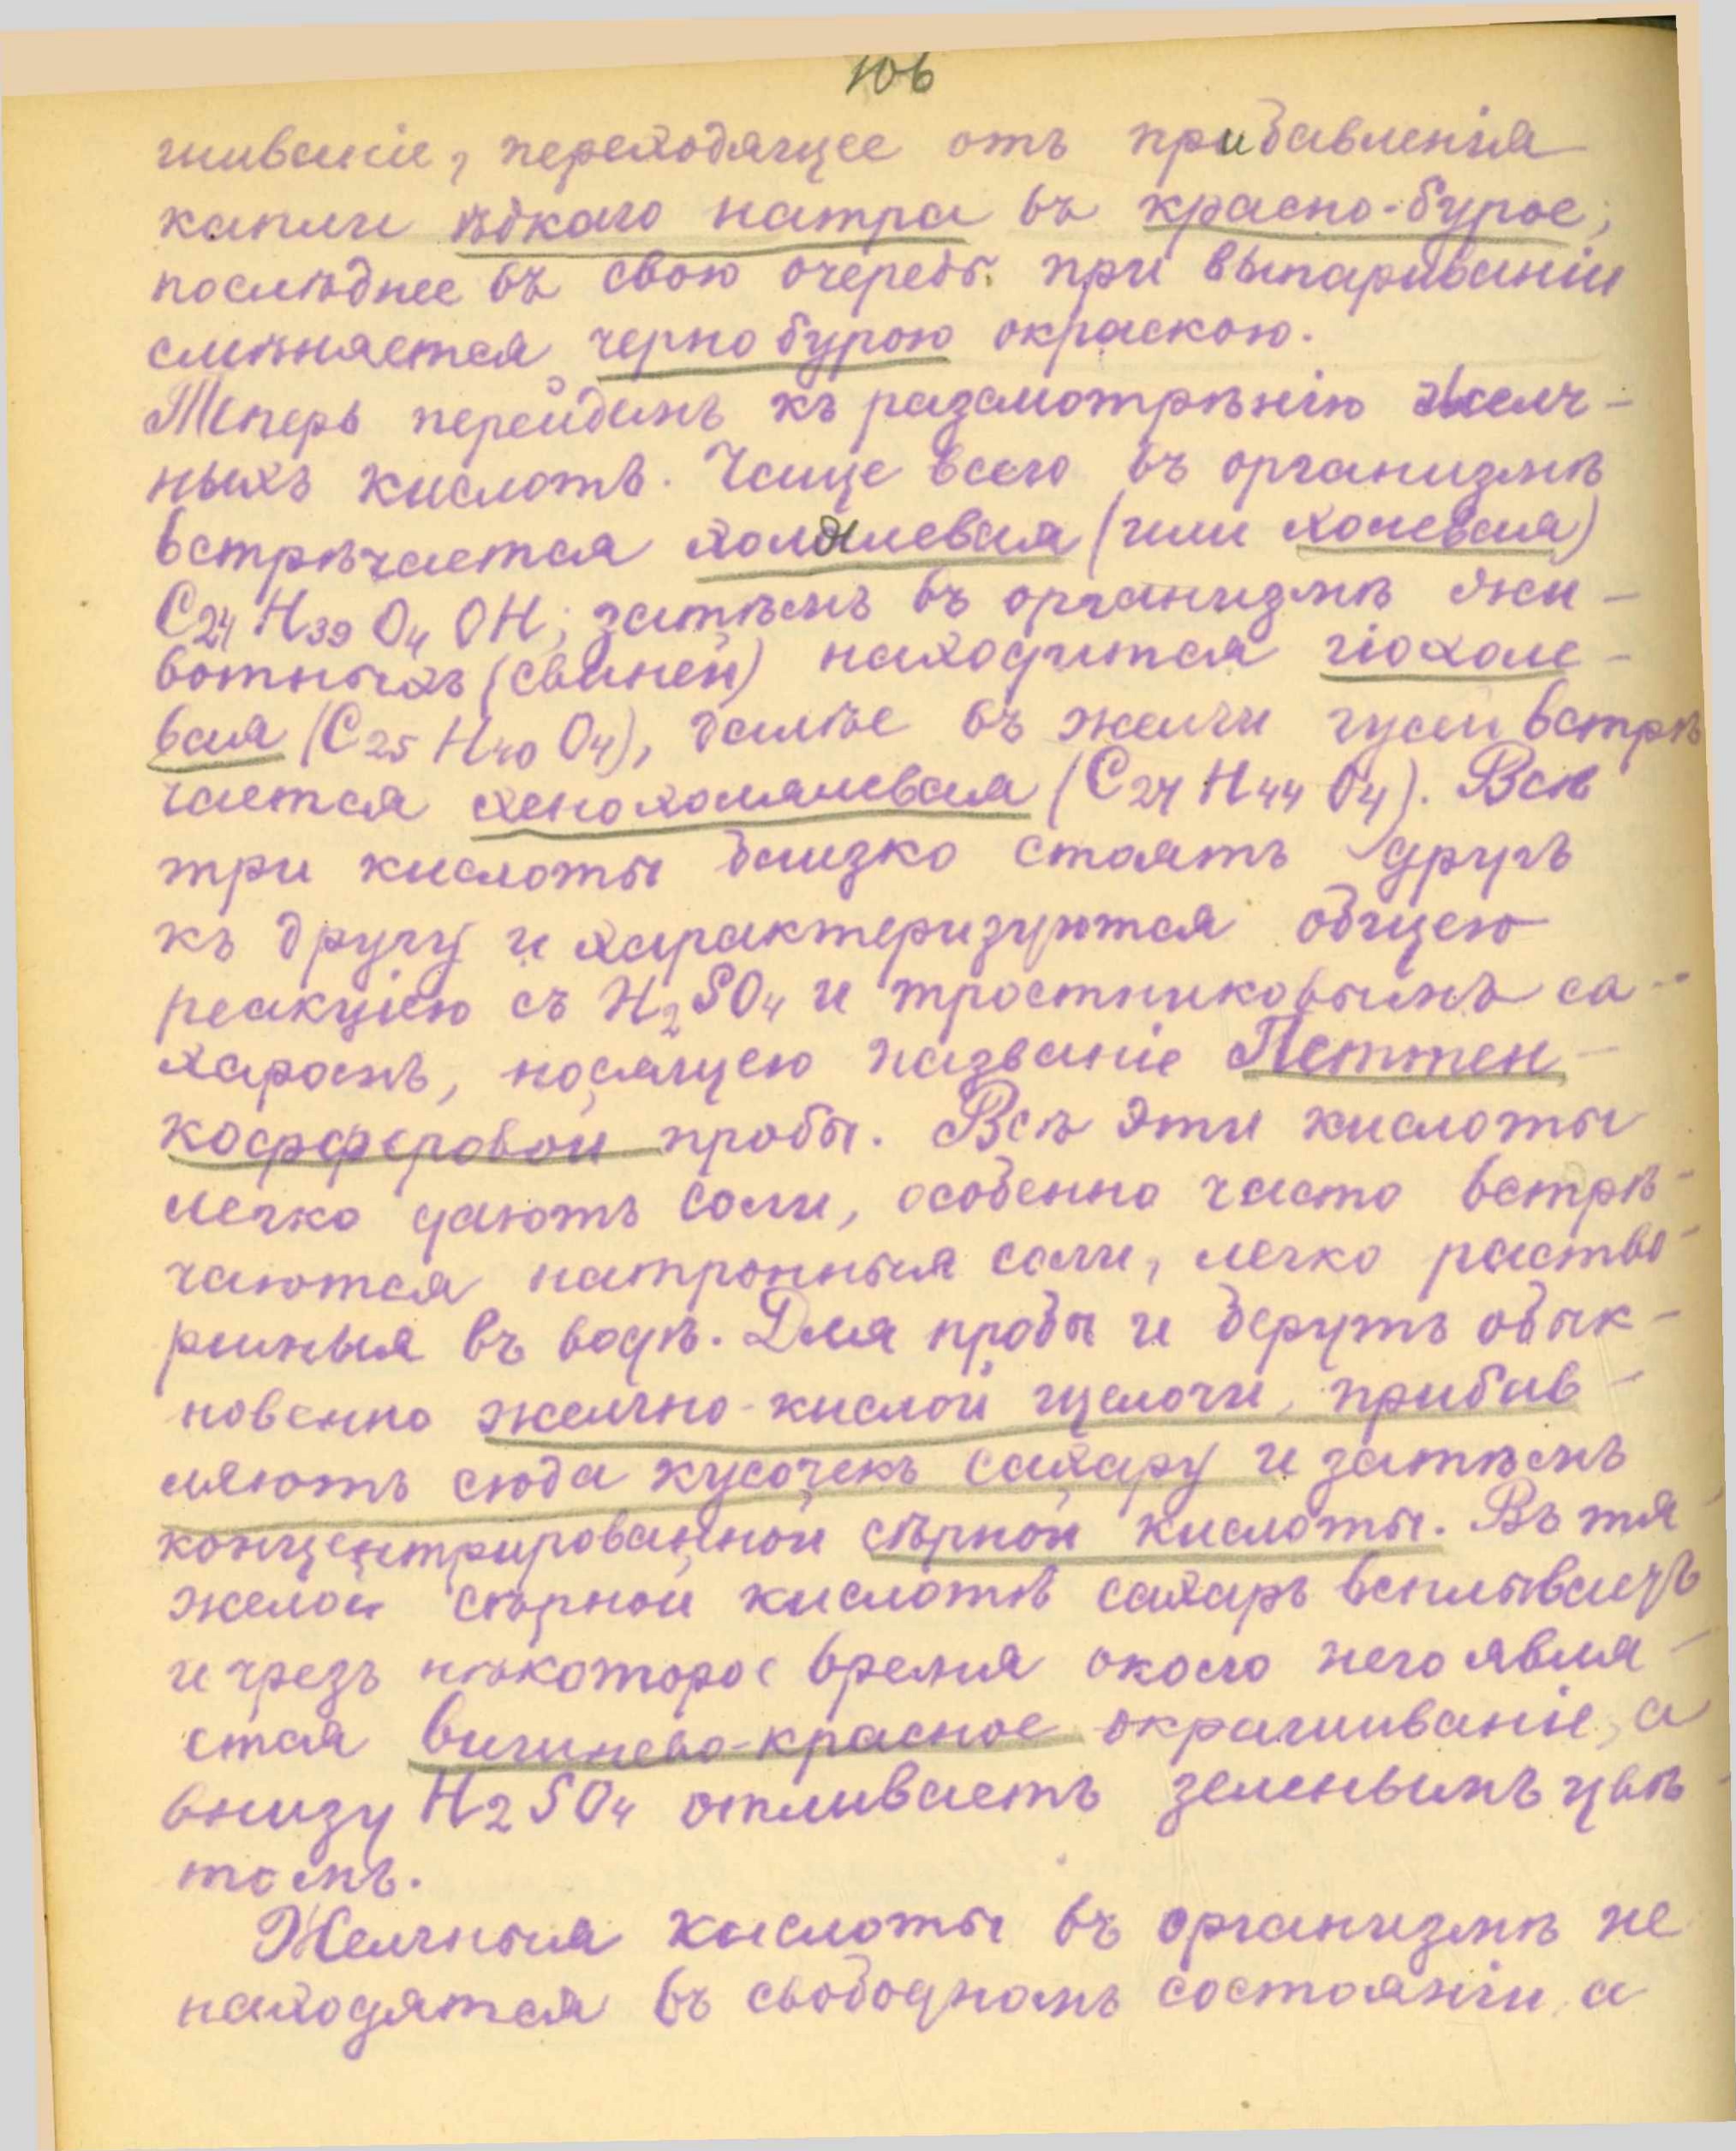 106
шиваніе, переходящее отъ прибавленія
капли ѣдкаго натра въ красно-бурое;
послѣднее въ свою очередь при выпариваніи
смѣняется чернобурою окраскою.
Теперь перейдемъ къ разсмотрѣнію желч-
ныхъ кислотъ. Чаще всего въ организмѣ
встрѣчается холалевая (или холевая)
C24 H39 O4 OH; затѣмъ въ организмѣ жи-
вотныхъ (свиней) находится гіохоле-
вая (C25 H40 O4), далѣе въ желчи гуси встрѣ
чается хенохолялевая (C27 H44 O4). Всѣ
три кислоты близко стоятъ другъ
къ другу и характеризуются общею
реакціею съ H2SO4 и тростниковымъ са-
харомъ, носящею названіе Петтен-
кофферовой пробы. Всѣ эти кислоты
легко даютъ соли, особенно часто встрѣ-
чаются натронныя соли, легко раство-
римыя въ водѣ. Для пробы и берутъ обык-
новенно желчно-кислой щелочи, прибав-
ляютъ сюда кусочекъ сахару и затѣмъ
концентрированной сѣрной кислоты. Въ тя-
желой сѣрной кислотѣ сахаръ всплываетъ
и чрезъ нѣкоторое время около него явля-
ется вишнево-красное окрашиваніе, а
внизу H2SO4 отливаетъ зеленымъ цвѣ-
томъ.
Желчныя кислоты въ организмѣ не
находятся въ свободномъ состояніи, а